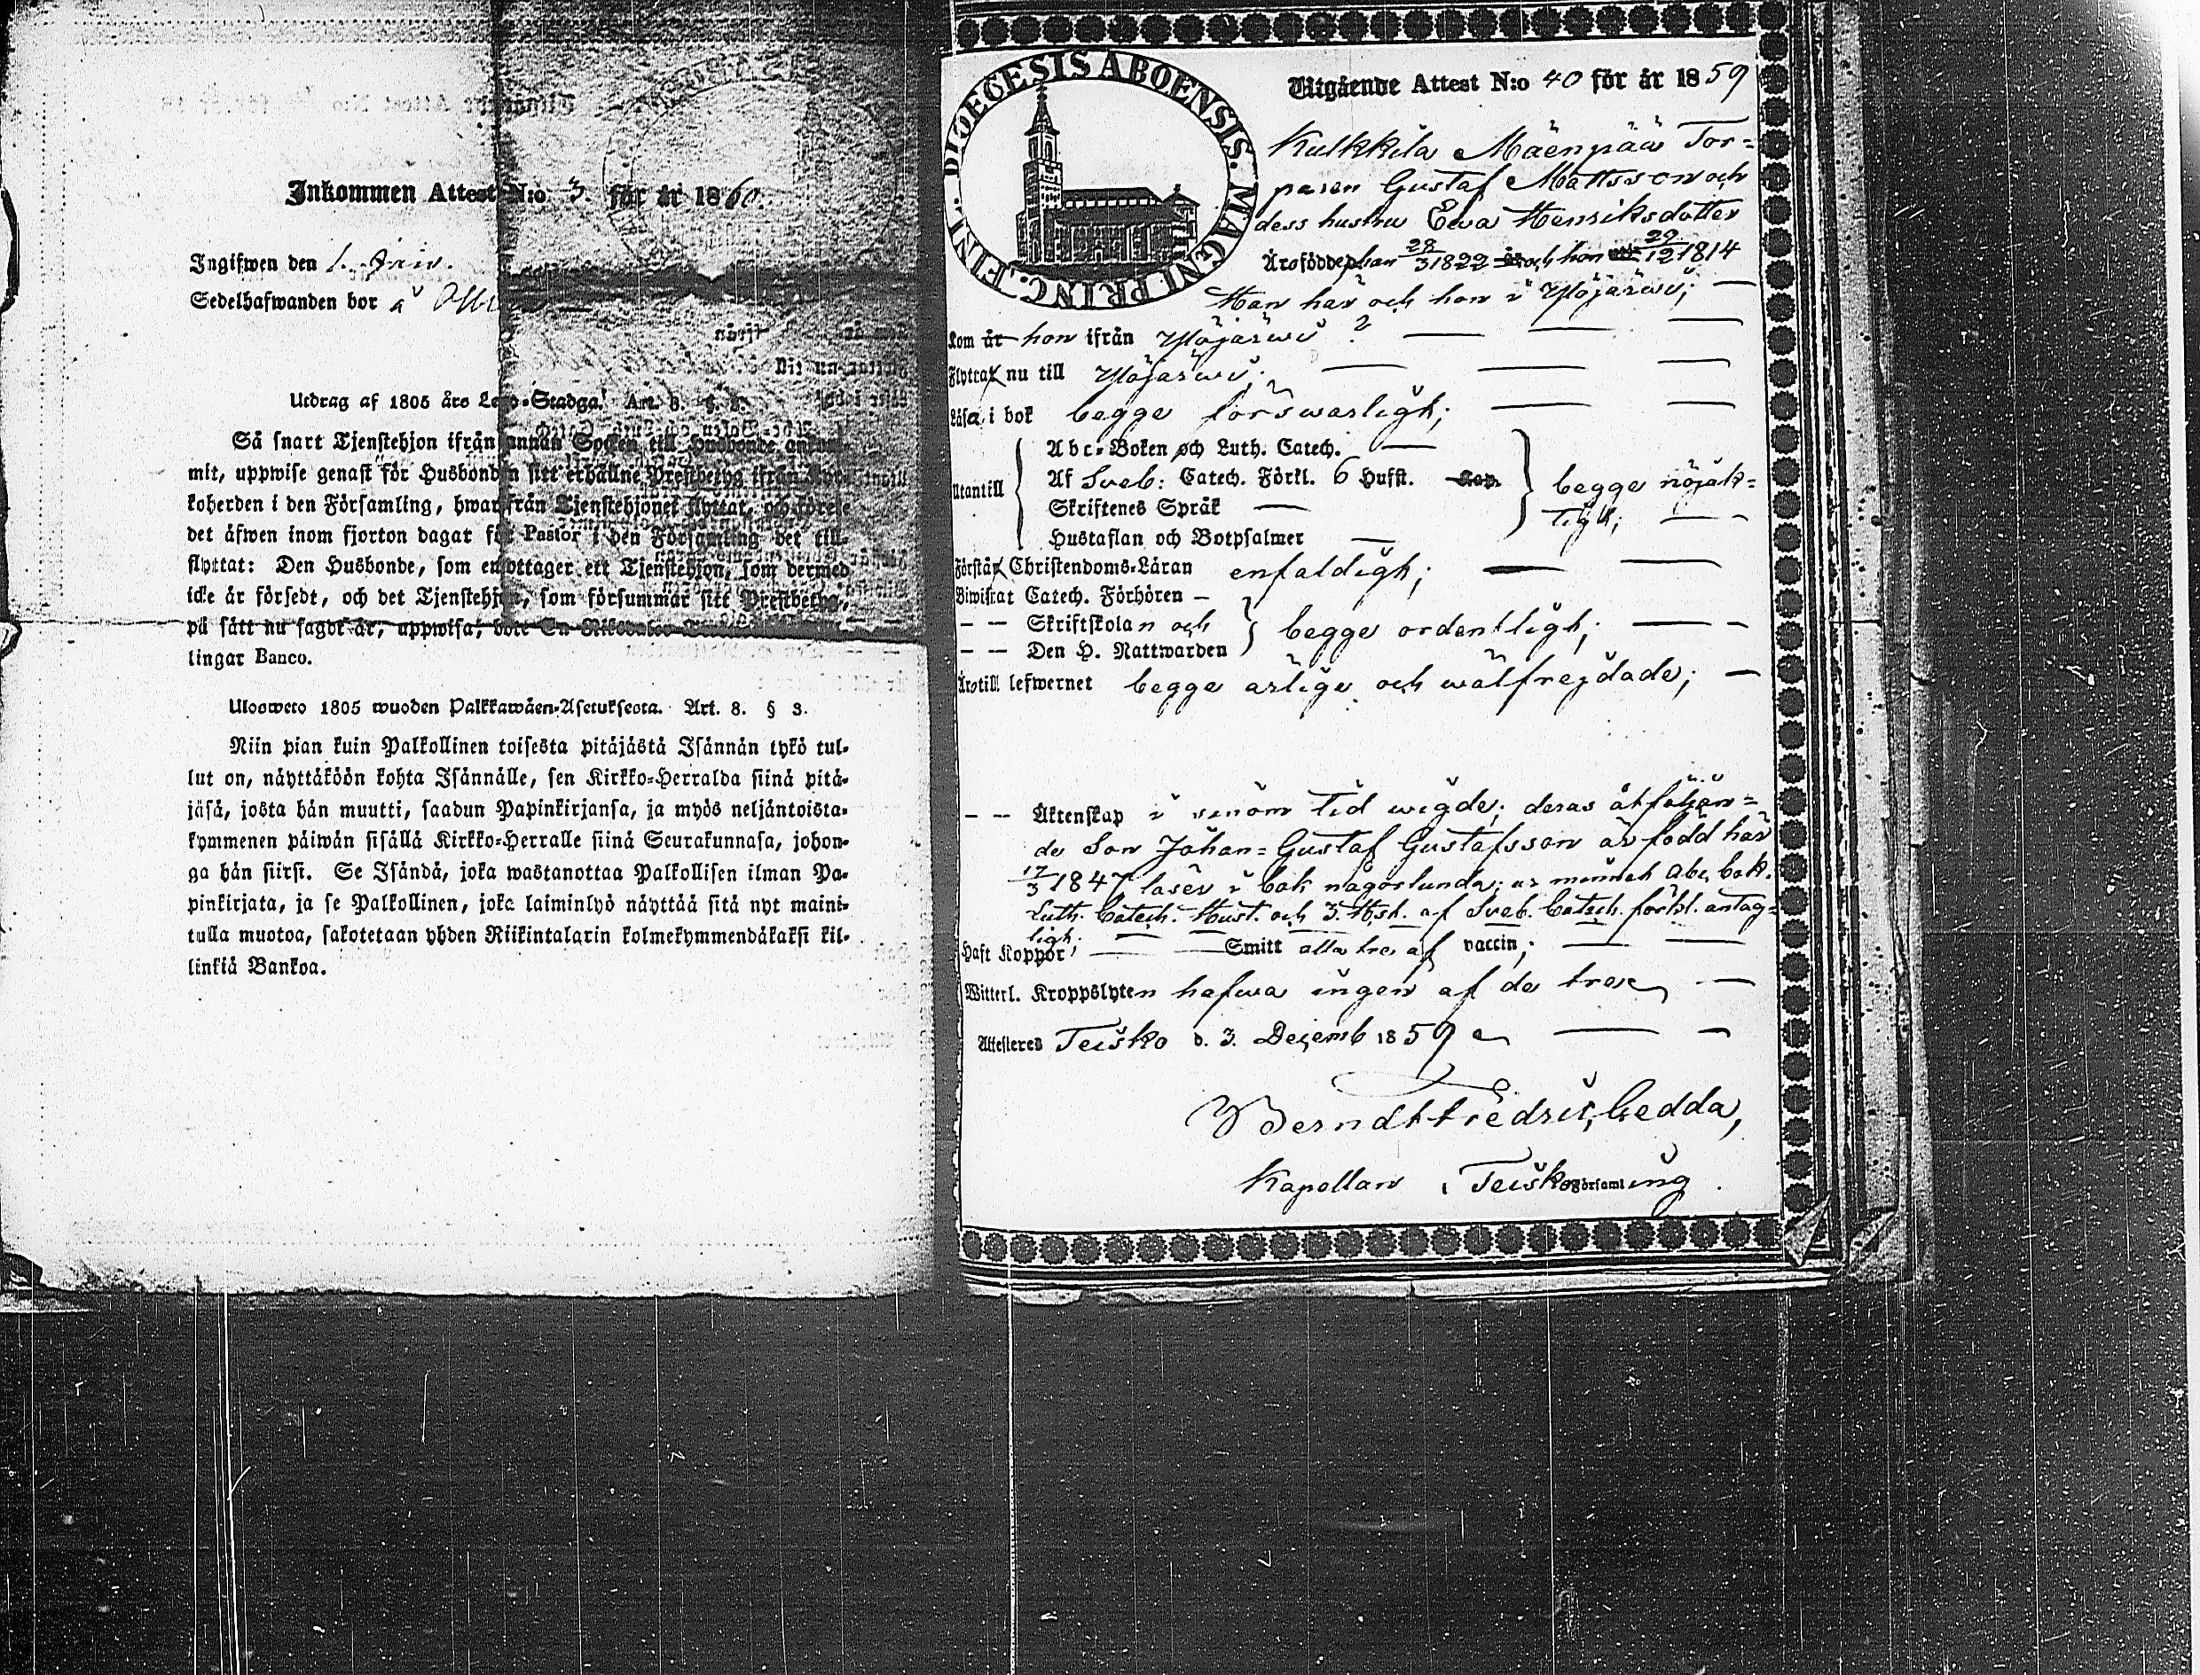 Inkommen Attest N:o 3. för år 1860.
Ingifwen den 1.
Sedelhafwanden bor å
Utdrag af 1805 års Lego-Stadga. Art. 8. §. 3.
Så snart Tjenstehjon ifrån annan Socken till Husbonde ankom-
mit, uppwise genast för Husbonden sitt erhållne Prestbetyg ifrån Kyr-
koherden i den Församling, hwarfrån Tjenstehjonet flyttat, och förete
det äfwen inom fjorton dagar för Pastor i den Församling det till-
flyttat: Den Husbonde, som emottager ett Tjenstehjon, som dermed
icke är försedt, och det Tjenstehjon, som försummar sitt Prestbetyg,
på sätt nu sagdt är, uppwisa, böte En Riksdaler
lingar Banco.
Uloswето 1805 wuoden Palkkawäen-Asetuksesta. Art. 8. § 3.
Niin pian kuin Palkollinen toisesta pitäjästä Isännän tykö tul-
lut on, näyttäköön kohta Isännälle, sen Kirkko-Herralda siinä pitä-
jäsä, josta hän muutti, saadun Papinkirjansa, ja myös neljäntoista-
kymmenen päiwän sisällä Kirkko-Herralle siinä Seurakunnasa, johon-
ga hän siirsi. Se Isändä, joka wastanottaa Palkollisen ilman Pa-
pinkirjata, ja se Palkollinen, joka laiminlyö näyttää sitä nyt maini-
tulla muotoa, sakotetaan yhden Riikintalarin kolmekymmendäkaksi kil-
linkiä Bankoa.
DIOECESIS ABOENSIS. MAGNI PRINC. FINL.
Utgående Attest N:o 40 för år 1859
Kulkkila Mäenpää Tor-
paren Gustaf Mattsson och
dess hustru Ewa Henriksdotter
Äro födde, han 28/3 1822 och hon 29/12 1814
Han här och hon i Ylöjärwi; —
Kom hon ifrån Ylöjärwi ? — — —
Flyttat nu till Ylöjärwi; — — —
Läsa i bok begge förswarligh; — —
Utantill
Abc-Boken och Luth. Catech. —
Af Sveb: Catech. Förkl. 6 Hufst. Kap. begge nöjak-
Skriftenes Språk — tigh; — -
Hustaflan och Botpsalmer —
Förstå Christendoms-Läran enfaldigh; — —
Biwistat Catech. Förhören -
- - Skriftskolan och begge ordentligh; — -
- - Den H. Nattwarden
Äro till lefwernet begge ärlige och wälfrejdade; —
- - Äktenskap i sinom tid wigde; deras åtföljan-
de Son Johan-Gustaf Gustafsson är född här
17/3 1847, läser i bok någorlunda; ur minnet Abc bok.
Luth. Catech. Hust. och 3. Hst. af Sveb. Catech. förkl. antag-
ligh;
Haft Koppor — Smitt alla tre af vaccin; — —
Witterl. Kroppslyten hafwa ingen af de trenne —
Attesteres Teisko d. 3. Decemb 1859 — —
Berndt Fredric Gedda,
Kapellan i Teisko Församling.